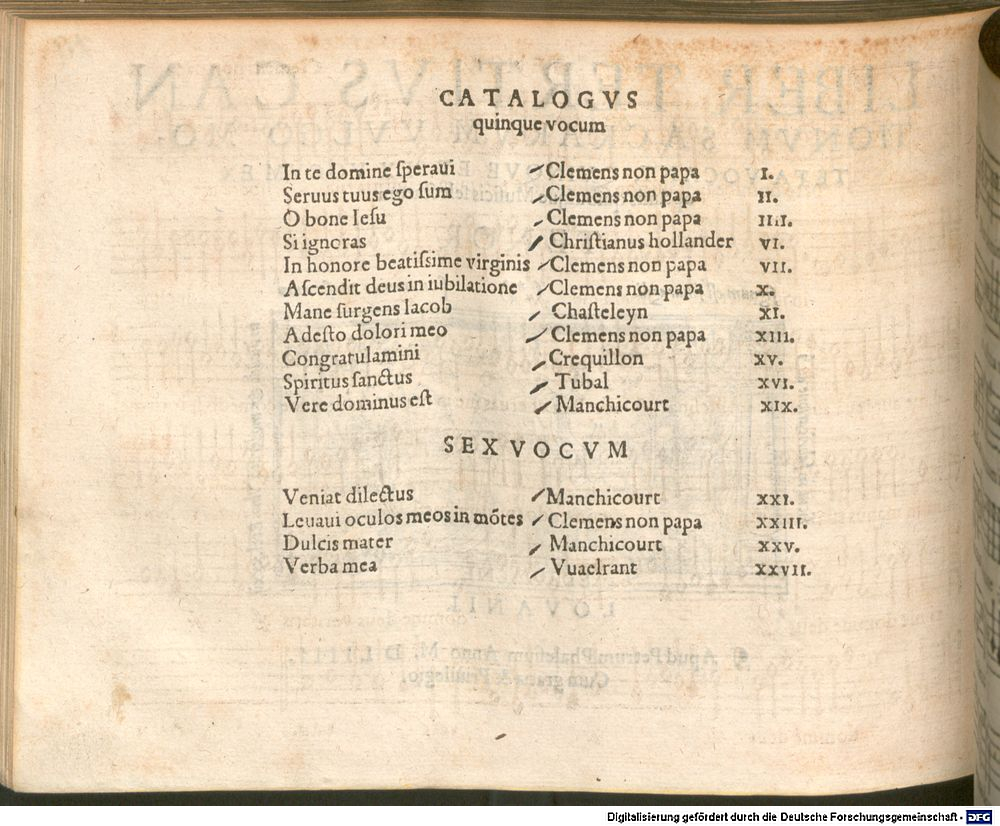 CATALOGVS
quinque vocum
In te domine ſperaui Clemens non papa I.
Seruus tuus ego ſum Clemens non papa II.
O bone Ieſu Clemens non papa IIII.
Si ignoras Chriſtianus hollander VI.
In honore beatiſsime virginis Clemens non papa VII.
Aſcendit deus in iubilatione Clemens non papa X.
Mane ſurgens Iacob Chaſteleyn XI.
Adeſto dolori meo Clemens non papa XIII.
Congratulamini Crequillon XV.
Spiritus ſanctus Tubal XVI.
Vere dominus eſt Manchicourt XIX.
SEX VOCVM
Veniat dilectus Manchicourt XXI.
Leuaui oculos meos in mõtes Clemens non papa XXIII.
Dulcis mater Manchicourt XXV.
Verba mea Vuaelrant XXVII.
Digitalisierung gefördert durch die Deutsche Forschungsgemeinschaft - DFG